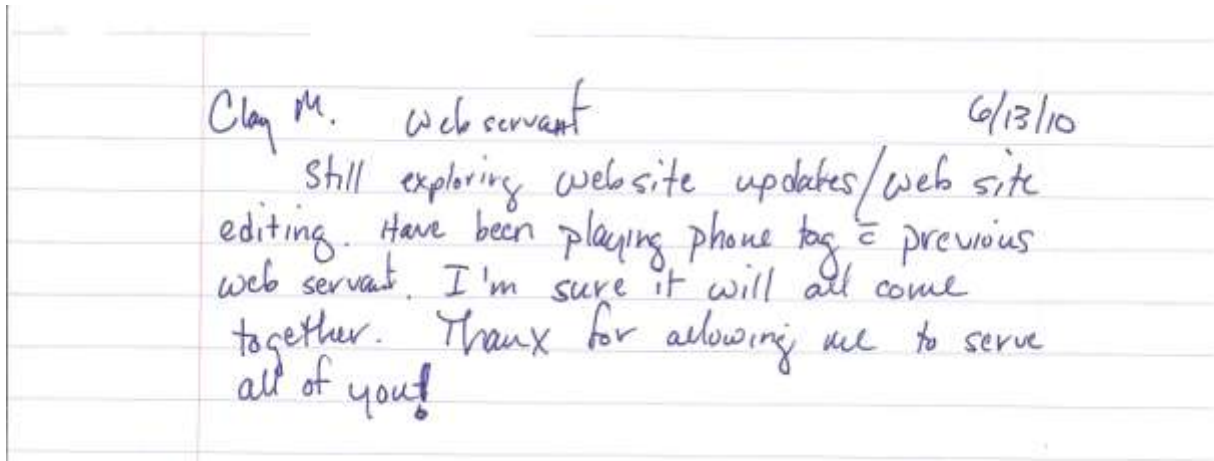 Clay M. Web servant 6/13/10
Still exploring website updates/web site
editing. Have been playing phone tag c̄ previous
web servant. I'm sure it will all come
together. Thanx for allowing me to serve
all of you!